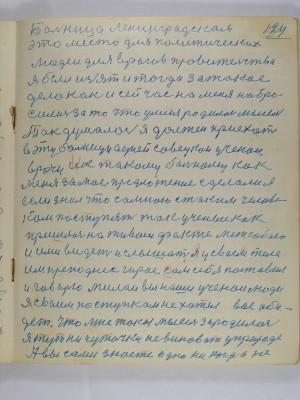 Больница Ленинградская 124
это место для политических
людей для врагов правительства
я был изъят и тогда за такое
дело как и сейчас на меня набро-
сились за то что у меня родилась мысел
Так думалось я должен приехать
в эту больницу а к ней советуем ученои
врачу как такому больному как
меня за мое предложение сделали я
если знал что со мною с таким челове-
ком поступят так ученые как
пришлось на живом факте
и им видеть и слышат я у своем теле
им преподнес сам себя поставил
и говорю милаи вы наши ученаи люди
я своим поступкам не хотел вас оби-
деть, что мне такая мысел зародилася
я тут ни чуточки не виноват у природе
А вы сами знаете одно никогда не